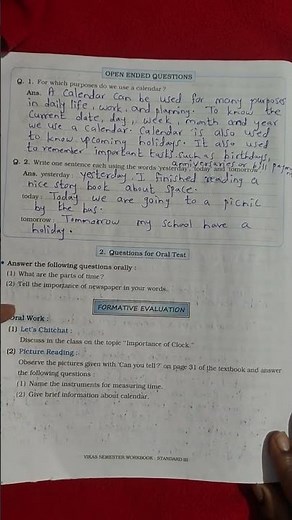 OPEN ENDED QUESTIONS
Q. 1. For which purposes do we use a calendar ?
Ans. A calendar can be used for many purposes
in daily life, work, and planning. To know the
current date, day, week, month and year
we use a calendar. Calendar is also used
to know upcoming holidays. It also used
to remember important tasks such as birthdays,
anniversaries or bill
Q. 2. Write one sentence each using the words yesterday, today and tomorrow.
Ans. yesterday : yesterday I finished reading a
nice story book about space.
today : Today we are going to a picnic
by the bus.
tomorrow : Tommorow my school have a
holiday.
2. Questions for Oral Test
• Answer the following questions orally :
(1) What are the parts of time ?
(2) Tell the importance of newspaper in your words.
FORMATIVE EVALUATION
Oral Work :
(1) Let's Chitchat :
Discuss in the class on the topic "Importance of Clock."
(2) Picture Reading :
Observe the pictures given with 'Can you tell ?' on page 31 of the textbook and answer
the following questions :
(1) Name the instruments for measuring time.
(2) Give brief information about calendar.
VIKAS SEMESTER WORKBOOK : STANDARD III